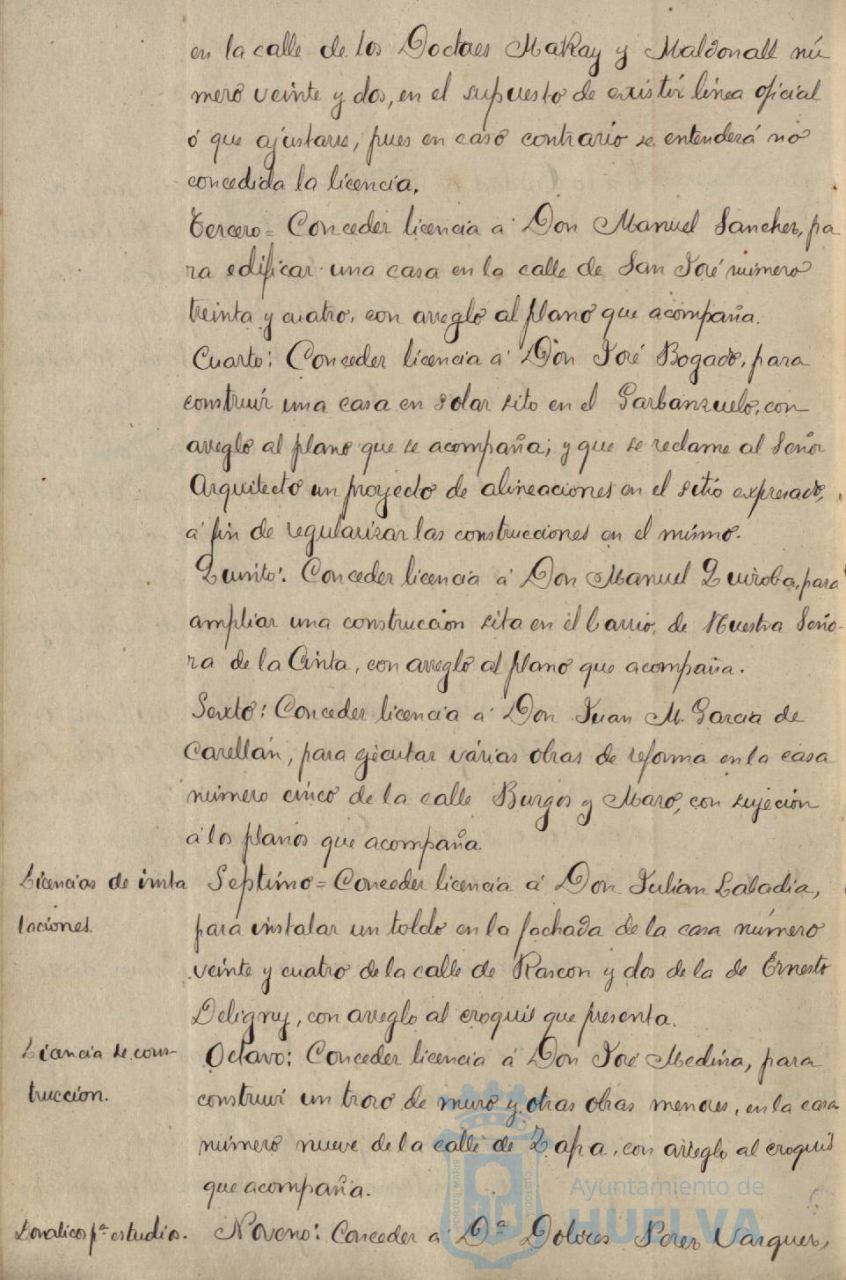 en la calle de los Doctores MaKay y Maldonall nú
mero veinte y dos, en el supuesto de existir línea oficial
ó que ajustarse, pues en caso contrario se entenderá no
concedida la licencia.
Tercero= Conceder licencia á Don Manuel Sanchez, pa
ra edificar una casa en la calle de San José número
treinta y cuatro, con arreglo al plano que acompaña.
Cuarto: Conceder licencia á Don José Bogado, para
construir una casa en solar sito en el Garbanzuelo, con
arreglo al plano que se acompaña; y que se reclame al Señor
Arquitecto un proyecto de alineaciones en el sitio expresado,
á fin de regularizar las construcciones en el mismo.
Quinto: Conceder licencia á Don Manuel Quiroba, para
ampliar una construccion sita en el barrio de Nuestra Seño-
ra de la Cinta, con arreglo al plano que acompaña.
Sexto: Conceder licencia á Don Juan M. Garcia de
Carellán, para ejecutar várias obras de reforma en la casa
número cinco de la calle Burgos y Maro, con sujeción
á los planos que acompaña.
Licencias de insta
laciones.
Septimo= Conceder licencia á Don Julian Labadia,
para instalar un toldo en la fachada de la casa número
veinte y cuatro de la calle de Rascon y dos de la de Ernesto
Deligny, con arreglo al croquis que presenta.
Licencia de cons-
truccion.
Octavo: Conceder licencia á Don José Medina, para
construir un trozo de muro y otras obras menores, en la casa
número nueve de la calle de Zapa, con arreglo al croquis
que acompaña.
Donativos pª estudio.
Noveno: Conceder á Dª Dolores Perez Vazquez,
Ayuntamiento de
HUELVA